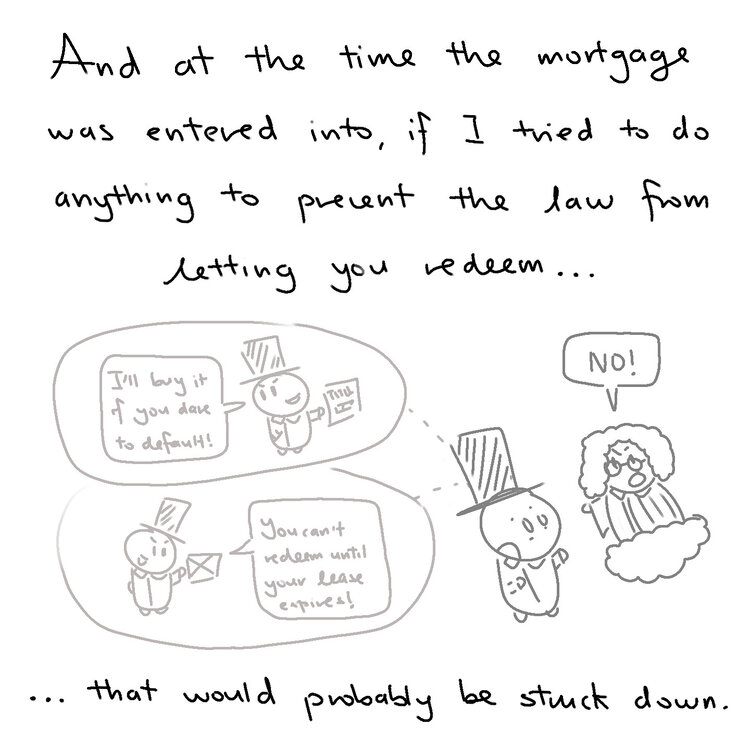 And at the time the mortgage
was entered into, if I tried to do
anything to prevent the law from
letting you redeem...
I'll buy it
if you dare
to default!
TITLE
NO!
You can't
redeem until
your lease
expires!
... that would probably be struck down.